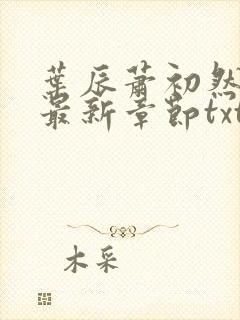 葉辰蕭初然
最新章節txt
木采